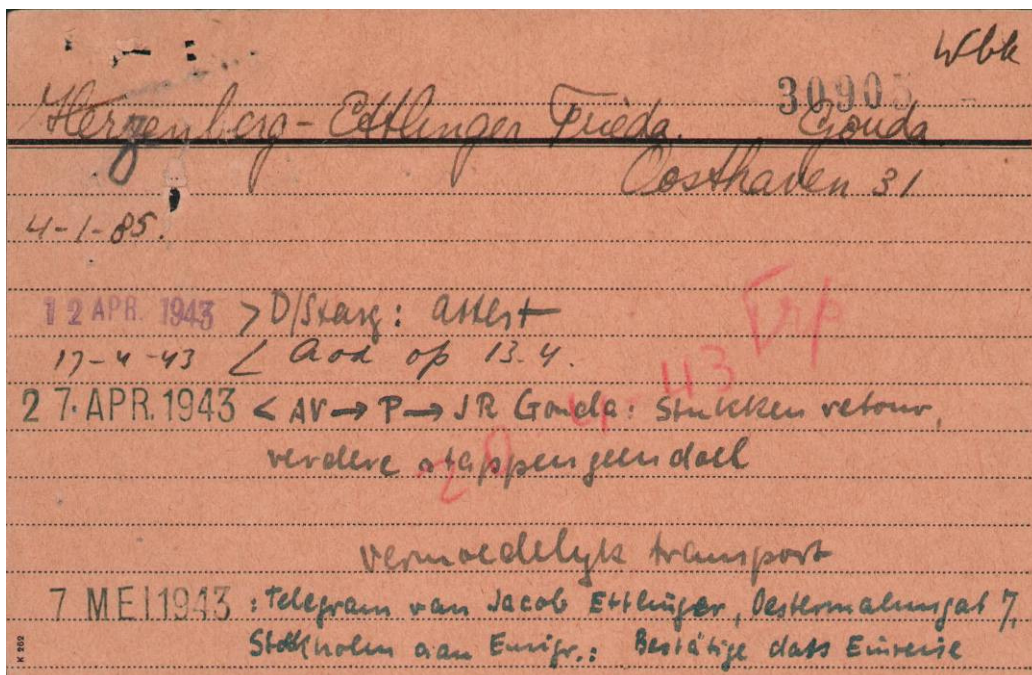 Wbk
30905 -
Herzenberg-Ettlinger Frieda. Gouda
Oosthaven 31
4-1-85.
Trp
12 APR. 1943 > D/Starg: attest
17-4-43 < Aod op 13.4.
20-4-43
27. APR. 1943 < AV → P → JR Gouda: Stukken retour,
verdere stappen geen doel
vermoedelijk transport
7 MEI 1943 : Telegram van Jacob Ettlinger, Oestermalmsgat 7,
Stockholm aan Emigr.: Bestätige dass Einreise
K 262